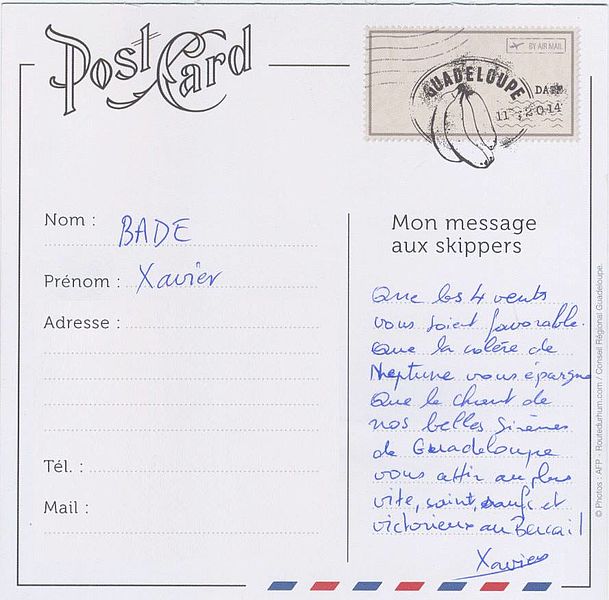 Post Card
BY AIR MAIL
GUADELOUPE
DATE
11 2014
Nom : BADE
Prénom : Xavier
Adresse :
Tél. :
Mail :
Mon message
aux skippers
Que les 4 vents
vous soient favorable.
Que la colère de
Neptune vous épargne
Que le chant de
nos belles sirènes
de Guadeloupe
vous attir au plus
vite, saint, saufs et
victorieux au Bercail
Xavier
© Photos : AFP . Routedurhum.com / Conseil Régional Guadeloupe.